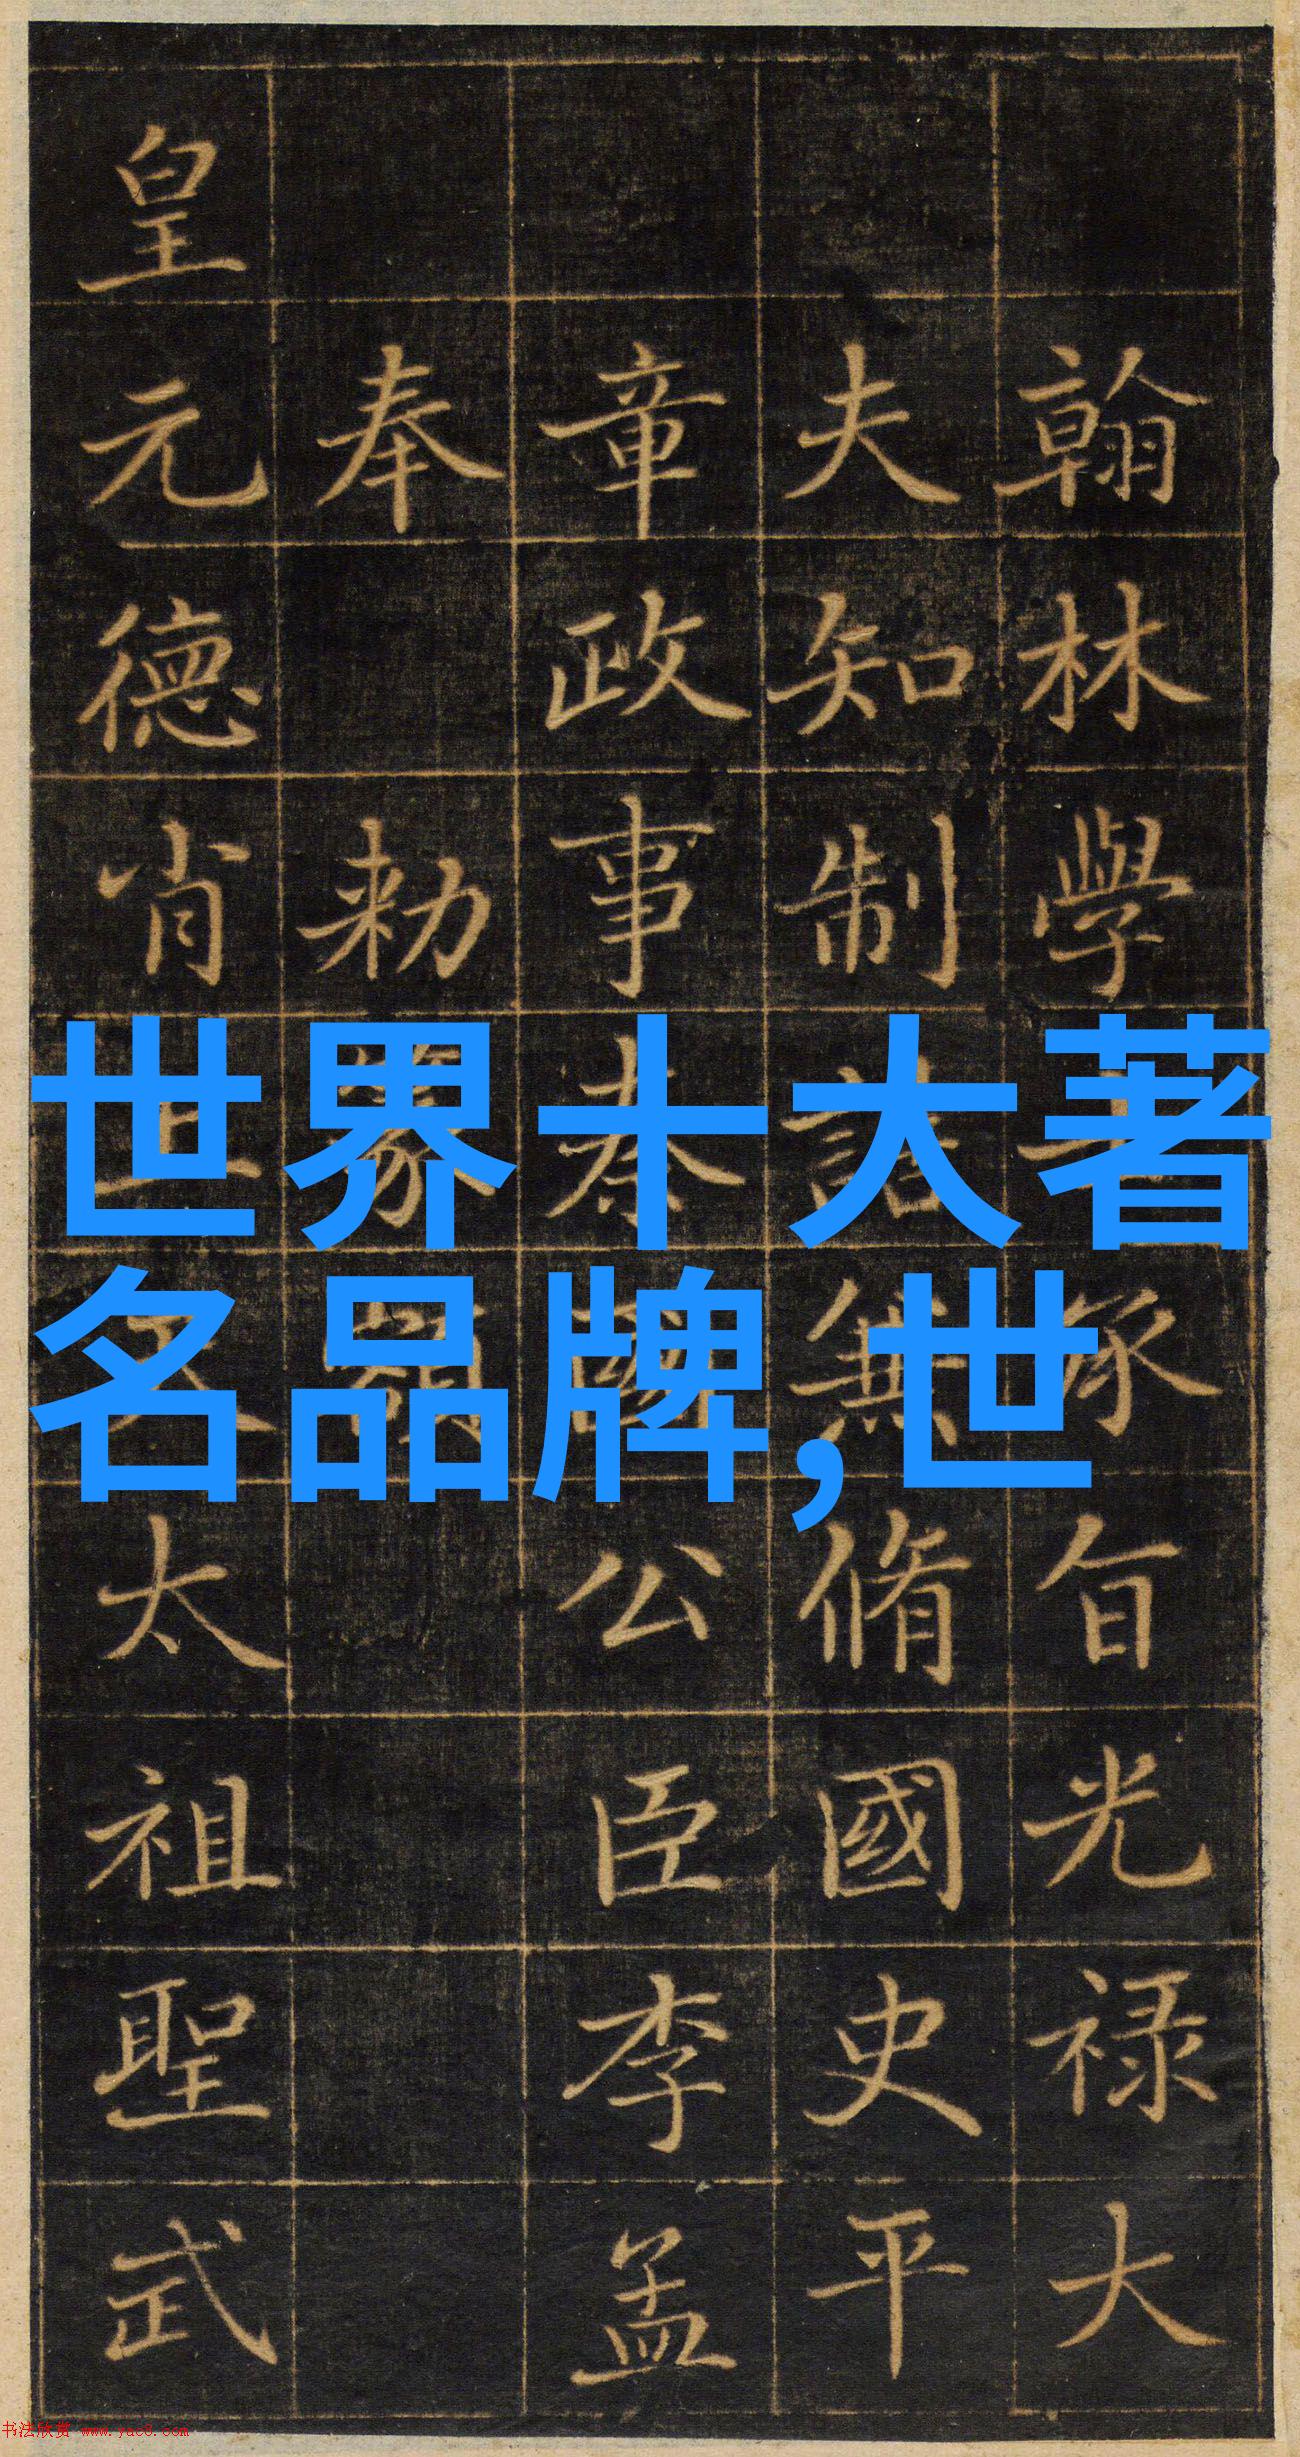 翰林學士承旨光禄大
夫知制誥兼脩國史平
章政事秦國公臣李孟
奉 勅篆額
皇元德肖上天太祖聖武
世界十大著
名品牌,世
书法欣赏 www.yac8.com